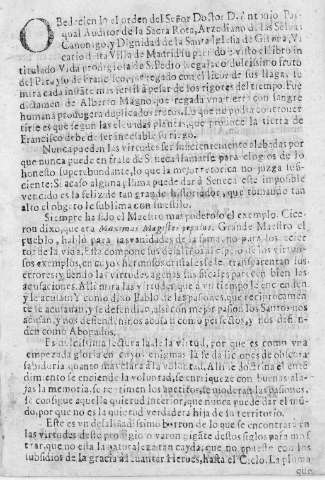 OBedeciendo el orden del Señor Doctor D. Antonio Pasqual
Auditor de la Sacra Rota, Arzediano de las Selvas
Canonigo, y Dignidad de la Santa Iglesia de Girona, Vicario
desta Villa de Madrid su partido è visto el libro intitulado
Vida prodigiosa de S. Pedro Regalado dulcissimo fruto
del Parayso de Francisco, que regado con el licor de sus llagas, se
mira cada instante
a pesar de los rigores del tiempo. Fue
dictamen de Alberto Magno, que regada una tierra con sangre
humana produgera duplicados frutos. Lo que no podrà controvertirse
es que segun las
plantas, que produce la tierra de
Francisco debe de ser incesable su riego.
Nunca pueden las virtudes ser suficientemente alabadas por
que nunca puede en frase de Seneca llamarse para elogios de lo
honesto superabundante, lo que la mejor retorica no juzga suficiente:
Si acaso alguna pluma puede dar à Seneca este imposible
vencido es la feliz de tan grande historiador, que tomando tan
alto el objeto le sublima con su estilo.
Siempre ha sido el Maestro mas poderoso el exemplo. Cicerou
dixo, que era Maximus Magister populus. Grande Maestro el
pueblo, hablò para las vanidades de la fama, no para los
de la vida. Esta compone
de las virtuosos
exemplos, en cuyos hermosos cristales se le transparentan sus
errores, siendo las virtudes agenas sus fiscales para
bien las
acusaciones. Alli mira las virtudes, que à un tiempo le encienden,
y le acusan: Y como dixo Pablo de las pasiones, que reciprocamente
le acusavan, y se defendian, assi con mejor pasion los Santos nos
acusan, y nos defienden: nos acusan como perfectos, y nos defienden
como Abogados.
Es dulcissima lectura la de la virtud, por que es como una
empezada gloria en cuyos enigmas la fe da liciones de obscura
sabiduria quanto mas clara à la voluntad. Alli se doctrina el entendimiento
se enciende la voluntad, se enriqueze con buenas alajas
la memoria, se refrenan los apetitos, se moderan las pasiones,
se consigue aquella quietud interior, que nunca puede dar el mundo,
por que no es la quietud verdadera hija de su territorio.
Este es un desaliñadissimo borron de lo que se encontrarà en
las virtudes deste prodigio o varon gigante destos siglos para mostrar,
que no està la naturaleza tan cayda, que no puede con los
subsidios de la gracia alevantar Heroes, hasta el Cielo. La pluma
que